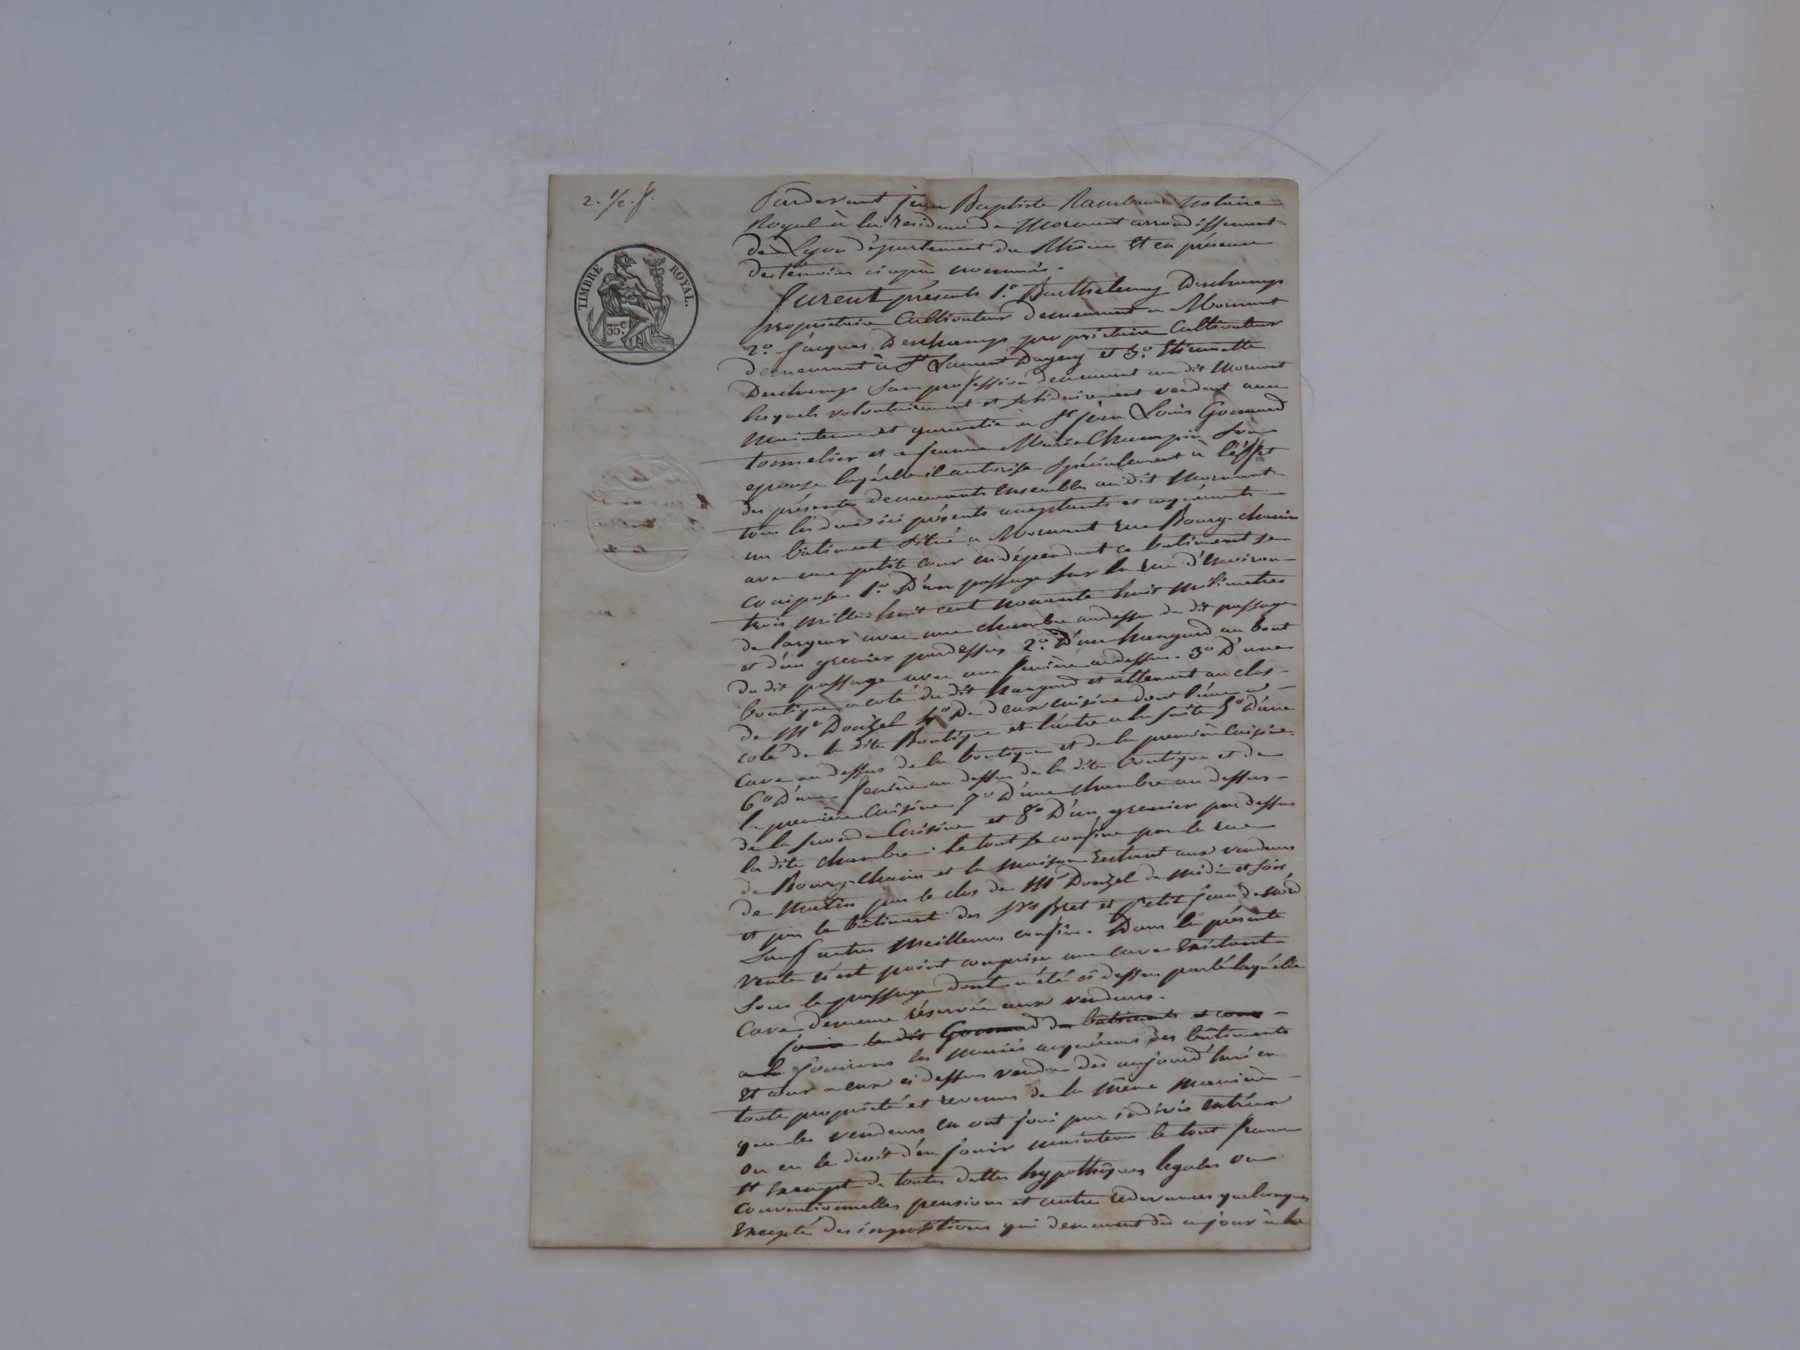 2. 1/2. f.
TIMBRE ROYAL.
35 c.
Pardevant jean Baptiste Rambaud Notaire
Royal à la résidence de Mornant arrondissement
de Lyon département du Rhône Et en présence
des témoins ci après nommés.
furent présents 1.º Barthelemy Deschamps
propriétaire Cultivateur demeurant a Mornant
2.º jacques Deschamps propriétaire Cultivateur
demeurant à St Laurent Dagny et 3.º Etiennette
Deschamps Sans profession demeurant au dit Mornant
lesquels volontairement et solidairement vendent avec
Maintenue et garantie a Sr jean Louis Gonnard
tonnelier et a jeanne Marie Champin Son
epouse laquelle il autorise spécialement a l'effet
des présentes demeurants Ensembles au dit Mornant
tous les deux ici présents acceptants et acquérants
un bâtiment Situé a Mornant rue Bourg-chanin
avec une petite cour en dépendant ce batiment se
compose 1.º D'un passage sur la rue d'Environ
trois mille huit cent nonante huit millimetres
de largeur avec une chambre audessus du dit passage
et d'un grenier pardessus 2.º D'un hangard au bout
du dit passage avec une feniere audessus. 3.º D'une
boutique a coté du dit hangard et attenant au clos
de Mr Donzel 4.º De deux cuisine dont l'une a
coté de la dite Boutique et l'autre a la suite 5.º d'une
Cave au dessous de la boutique et de la première Cuisine
6.º D'une feniere au dessus de la dite boutique et de
la première Cuisine 7.º D'une chambre au dessus
de la seconde Cuisine et 8.º D'un grenier par dessus
la dite chambre. le tout se confine par la rue
de Bourg-Chanin et la Maison Restant aux vendeurs
de Matin par le clos de Mr Donzel de midi et soir
et par le bâtiment des Srs Bret et Petit jean de Nord
Sauf autres Meilleurs confins. Dans la présente
vente n'est point comprise une cave Existant
Sous le passage dont a été ci dessus parlé laquelle
Cave demeure réservée aux vendeurs.
jouir le dit Gonnard du batiments et cour
a la jouirons les Mariés acquéreurs des bâtiments
Et cour a eux ci dessus vendus dès aujourd'hui en
toute propriété et revenus de la même manière
que les vendeurs en ont joui par indivis entr'eux
ou eu le droit d'en jouir maintenu le tout franc
Et Exempt de toutes dettes hypothèques legales ou
Conventionnelles pensions et autres redevances quelconques
Excepté des impositions qui demeurent dès ce jour à la